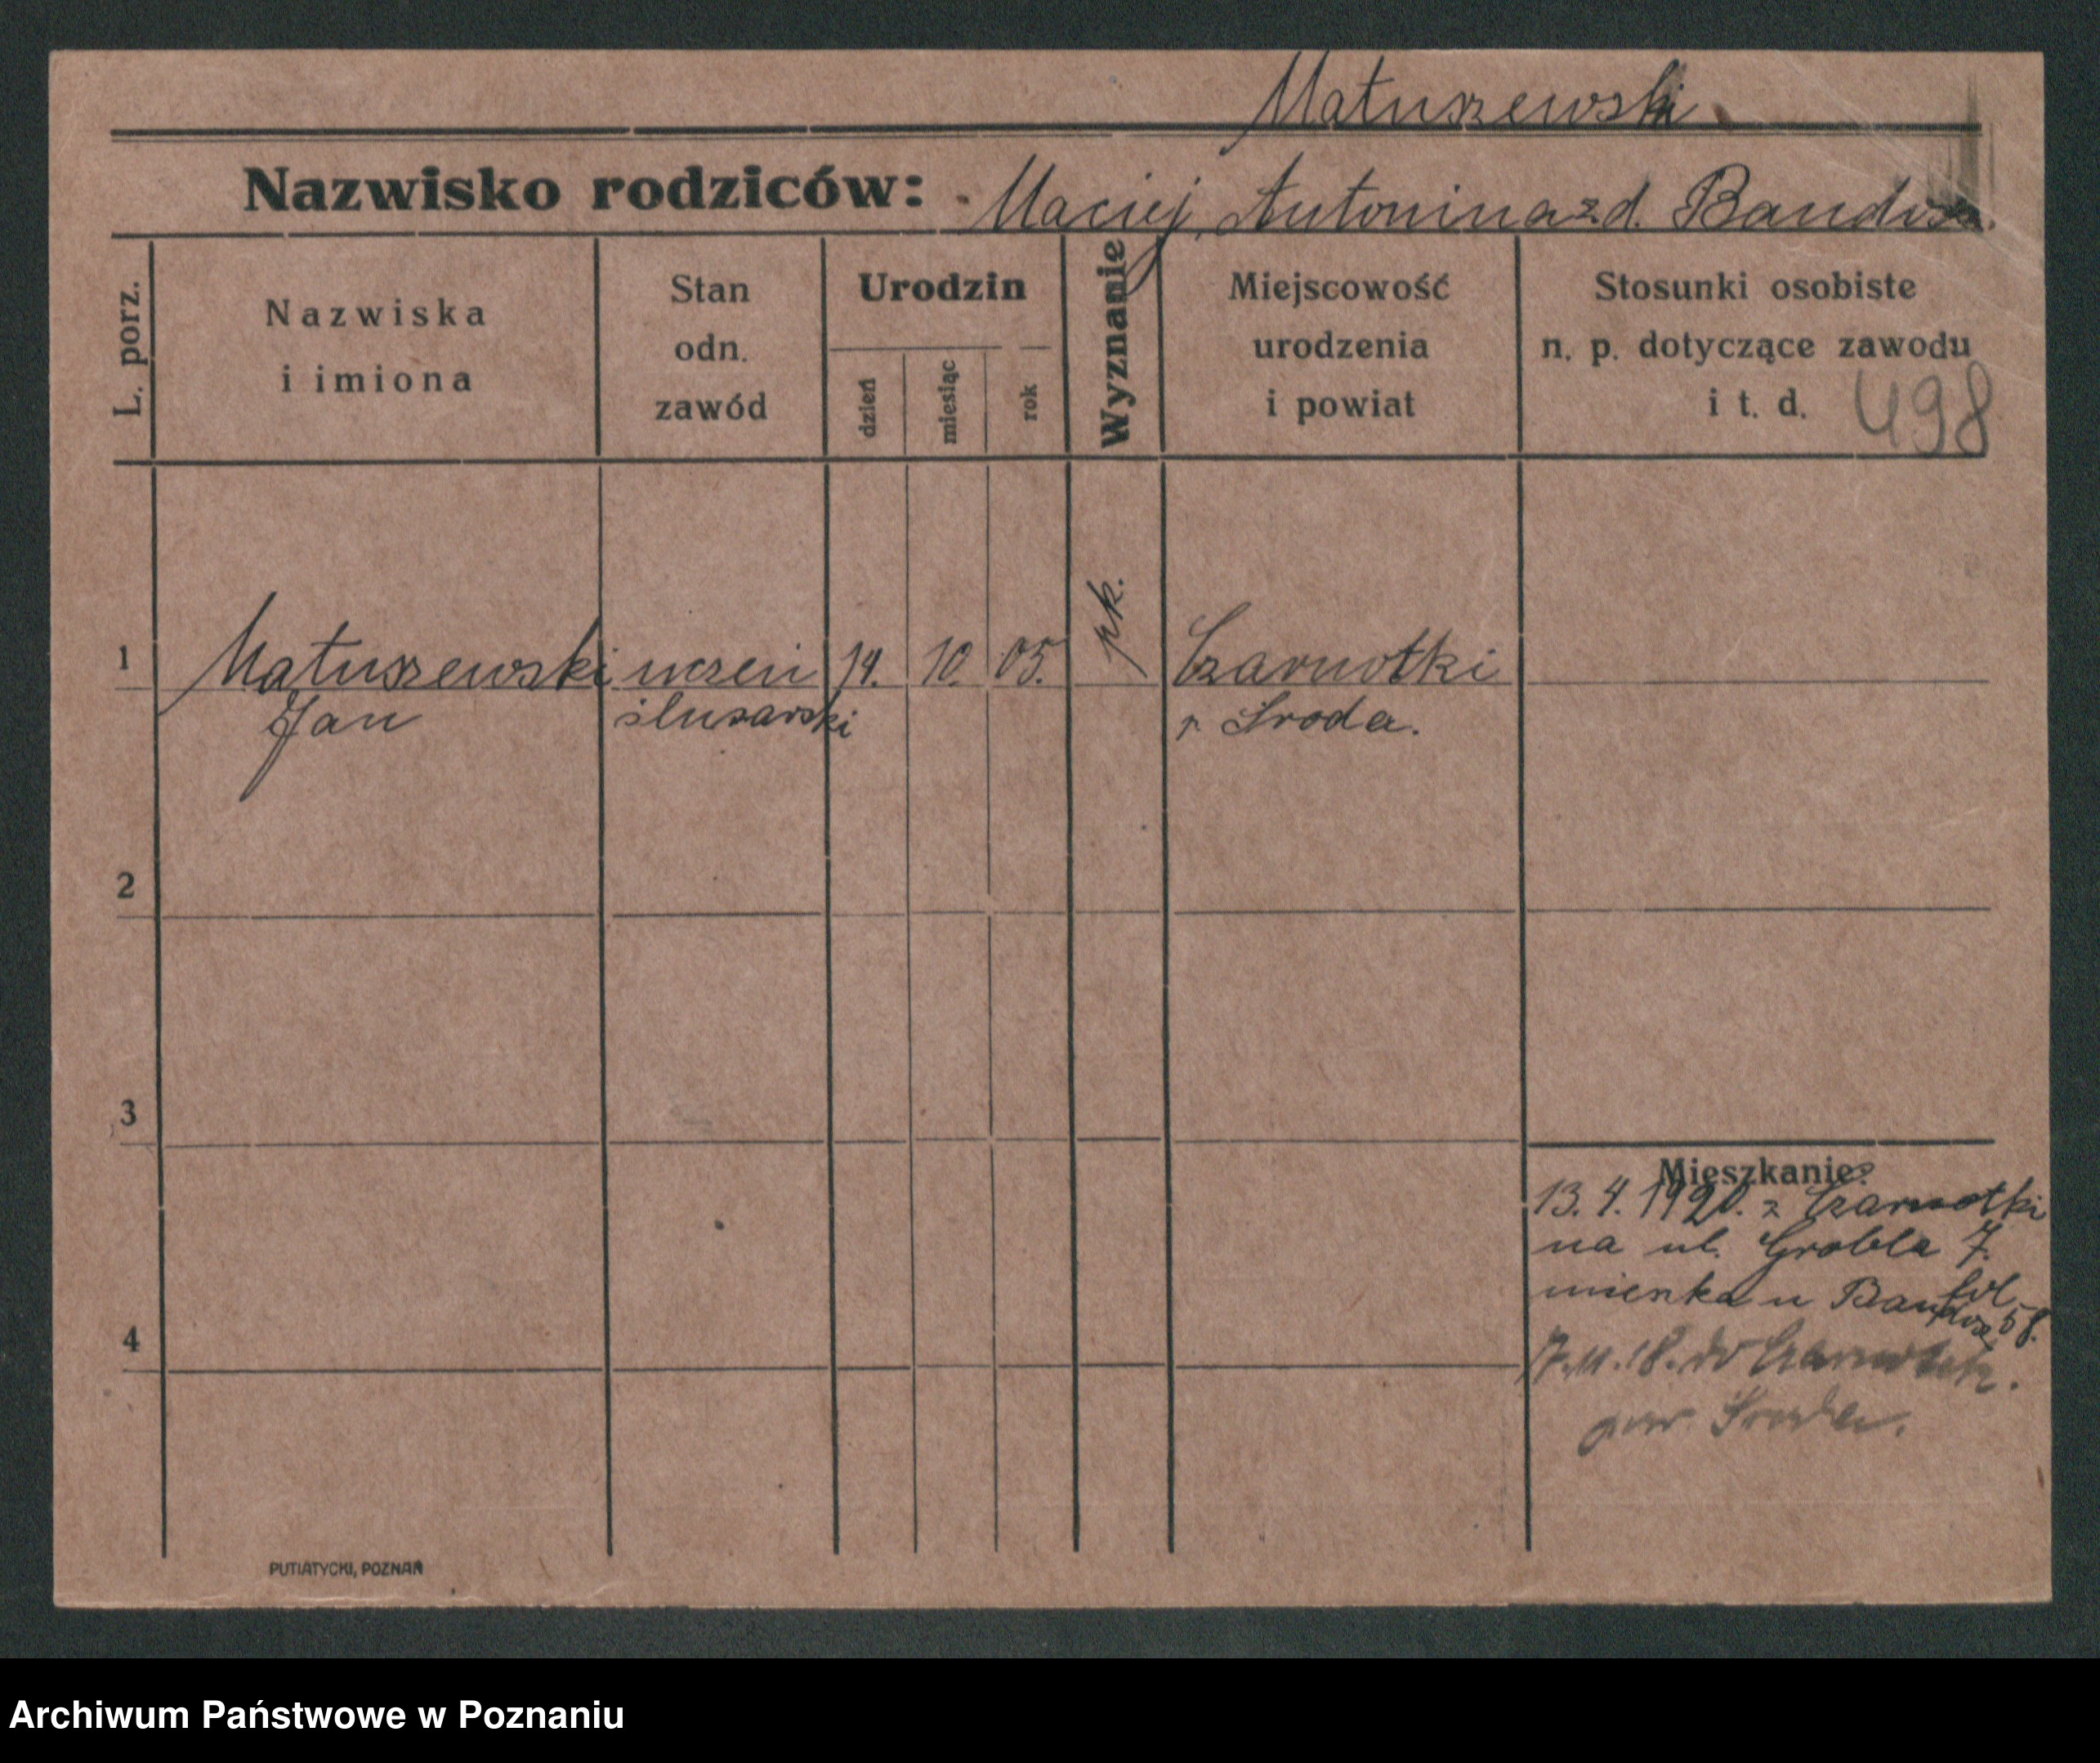 Matuszewski
Nazwisko rodziców: Maciej, Antonina z d. Bandosz.
L. porz.
Nazwiska
i imiona
Stan
odn.
zawód
Urodzin
dzień
miesiąc
rok
Wyznanie
Miejscowość
urodzenia
i powiat
Stosunki osobiste
n. p. dotyczące zawodu
i t. d.
498
1
Matuszewski uczeń 14. 10. 05. rk. Czarnotki
Jan ślusarski p. Środa.
2
3
4
Mieszkanie:
13. 4. 1920. z Czarnotki
na ul. Grobla 7.
mieszka u Bandosz
58.
do Czarnotek.
pow. Środa.
PUTIATYCKI, POZNAŃ
Archiwum Państwowe w Poznaniu